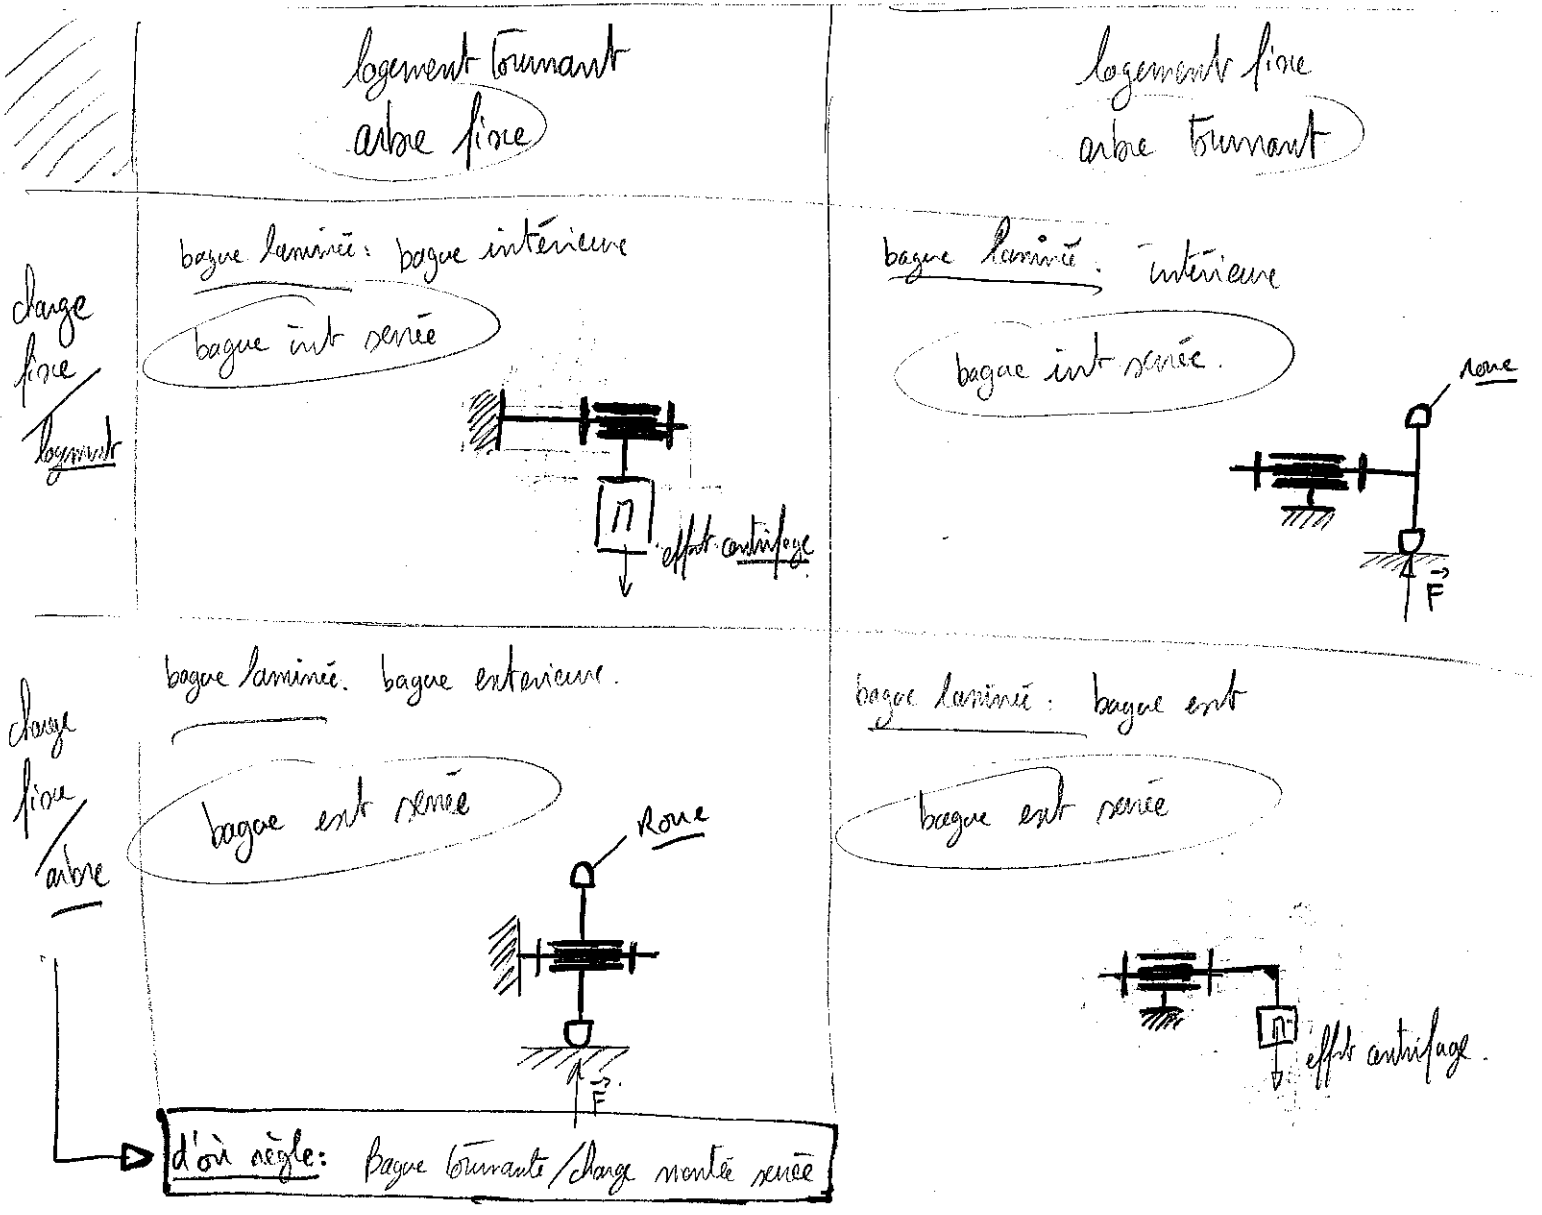 logement tournant
arbre fixe
logement fixe
arbre tournant
charge
fixe
/
logement
bague laminée : bague intérieure
bague int serrée
effort centrifuge
M
bague laminée : intérieure
bague int serrée.
roue
F
charge
fixe
/
arbre
bague laminée. bague exterieure.
bague ext serrée
Roue
F
bague laminée : bague ext
bague ext serrée
M
effort centrifuge.
d'où règle : Bague tournante/charge montée serrée